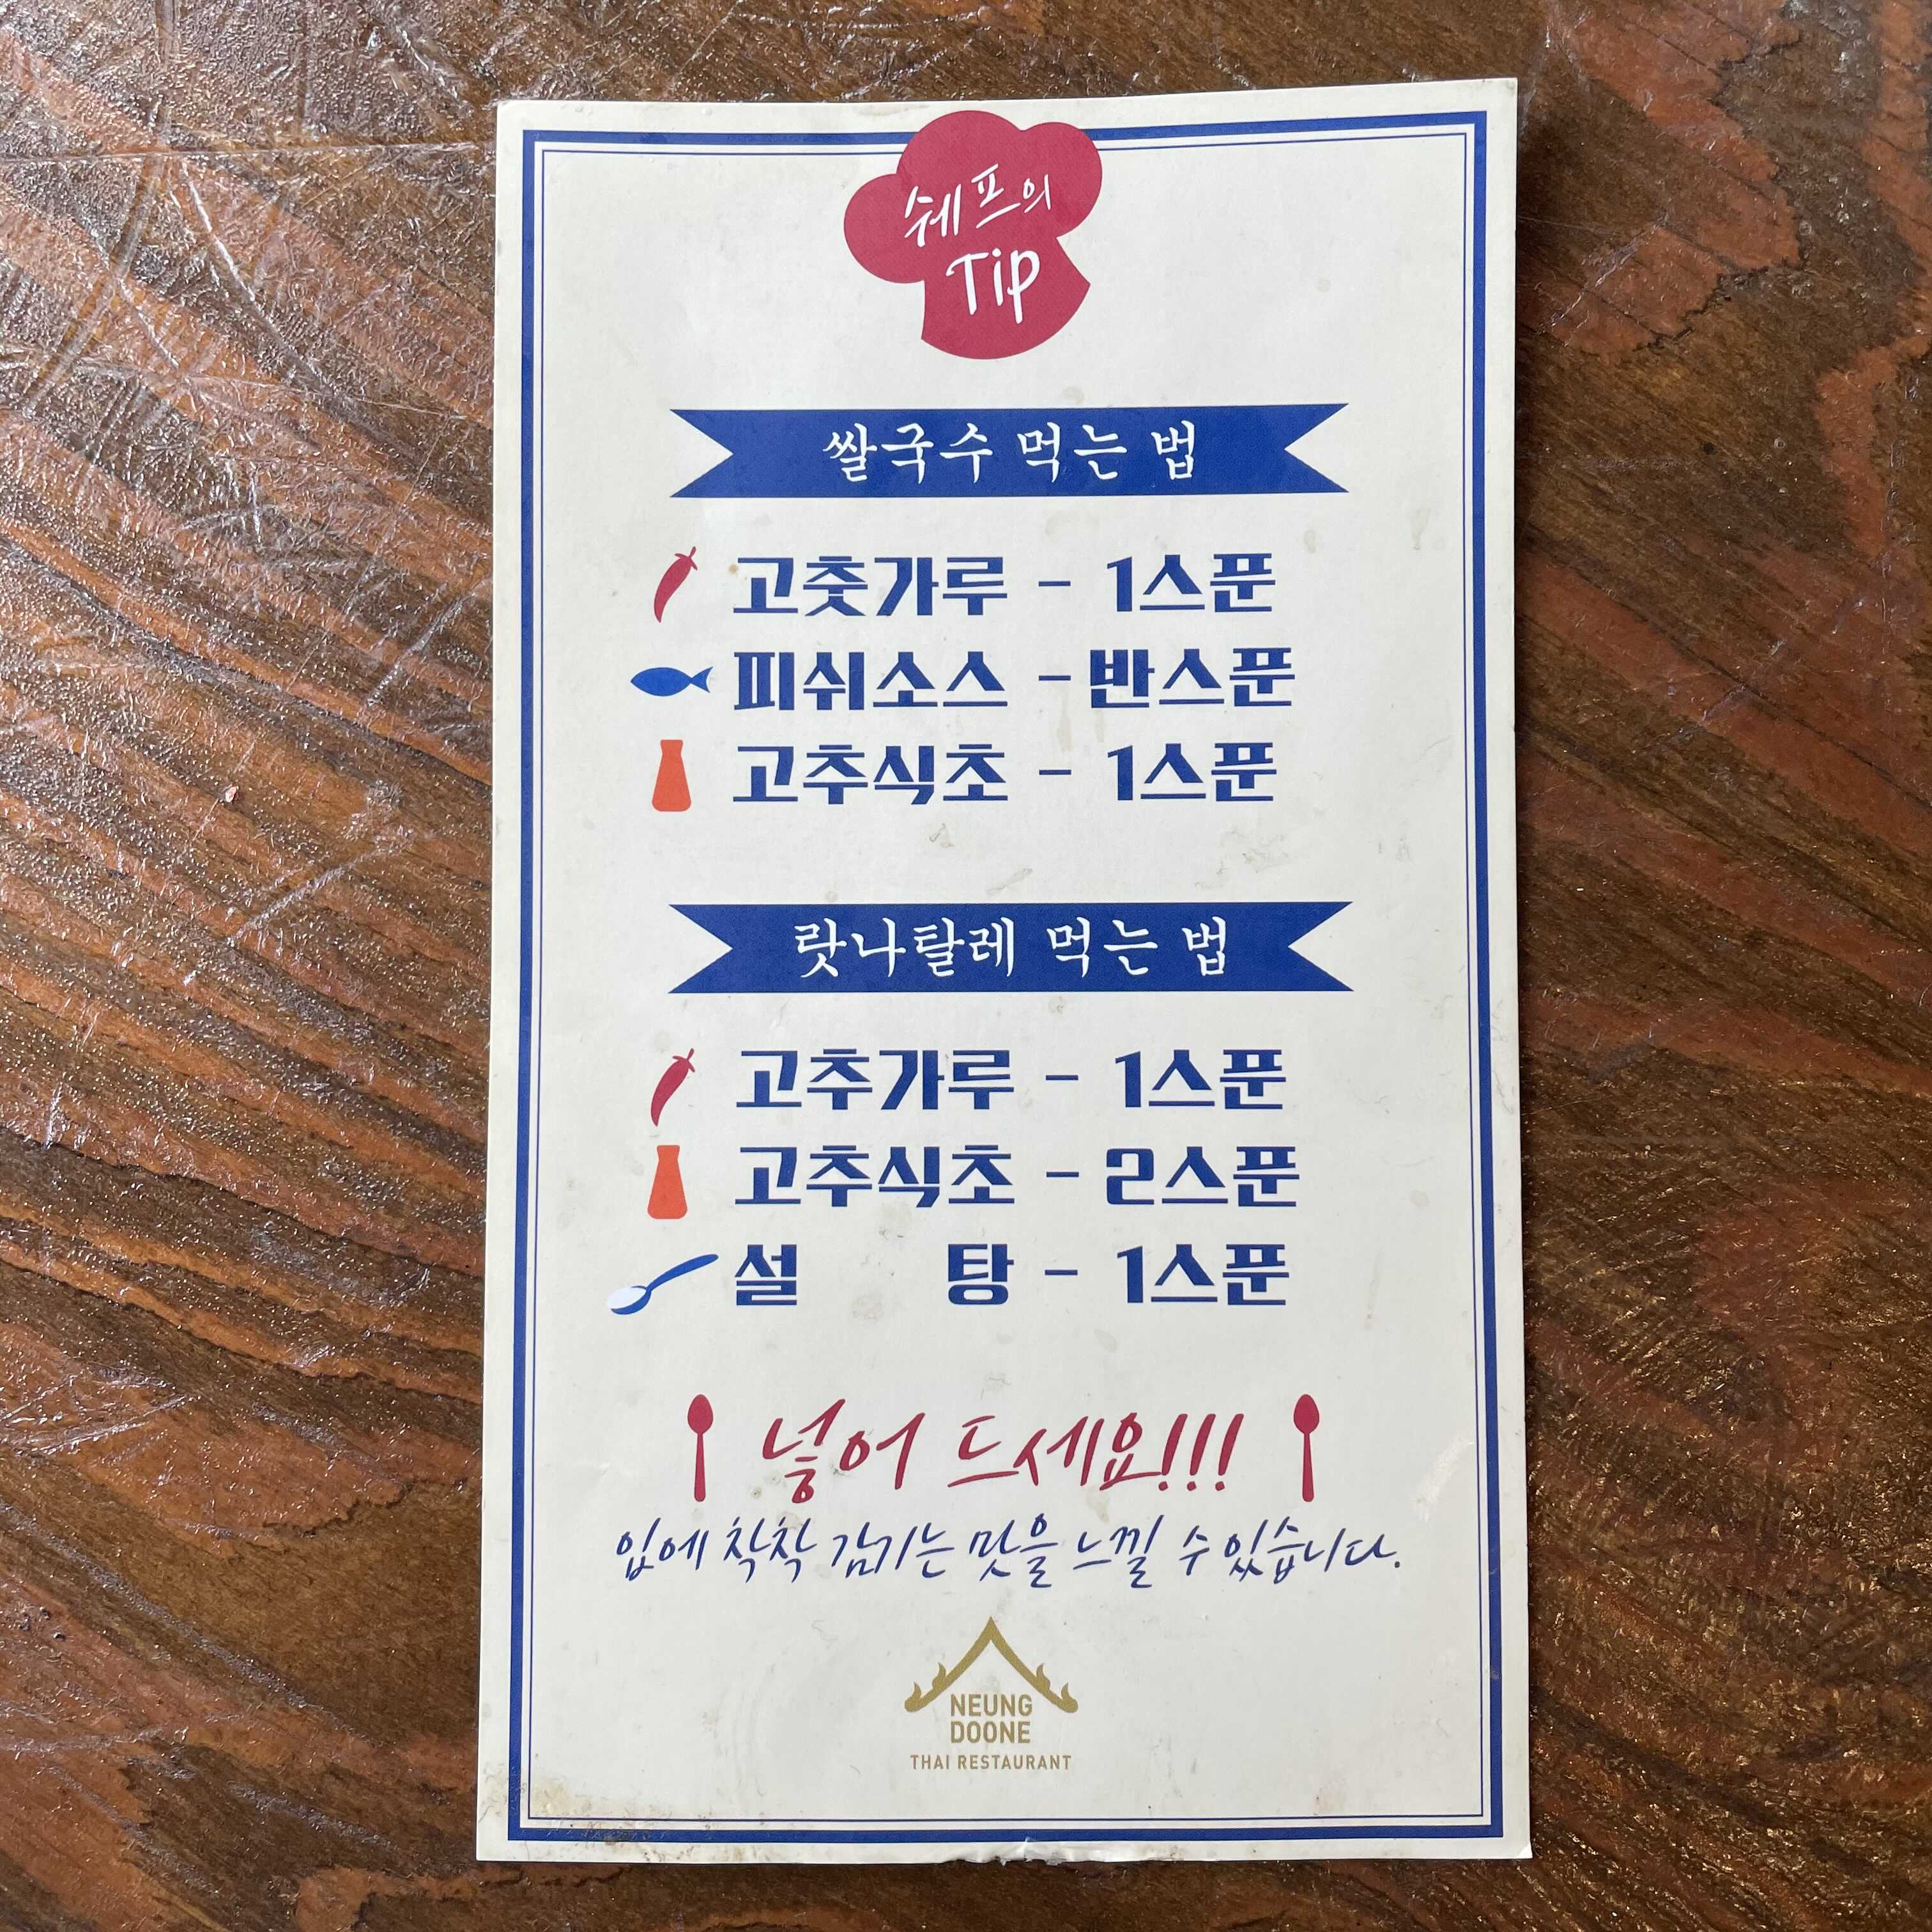 쉐프의
Tip
쌀국수 먹는 법
고춧가루 - 1스푼
피쉬소스 - 반스푼
고추식초 - 1스푼
랏나탈레 먹는 법
고추가루 - 1스푼
고추식초 - 2스푼
설 탕 - 1스푼
넣어 드세요!!!
입에 착착 감기는 맛을 느낄 수 있습니다.
NEUNG
DOONE
THAI RESTAURANT